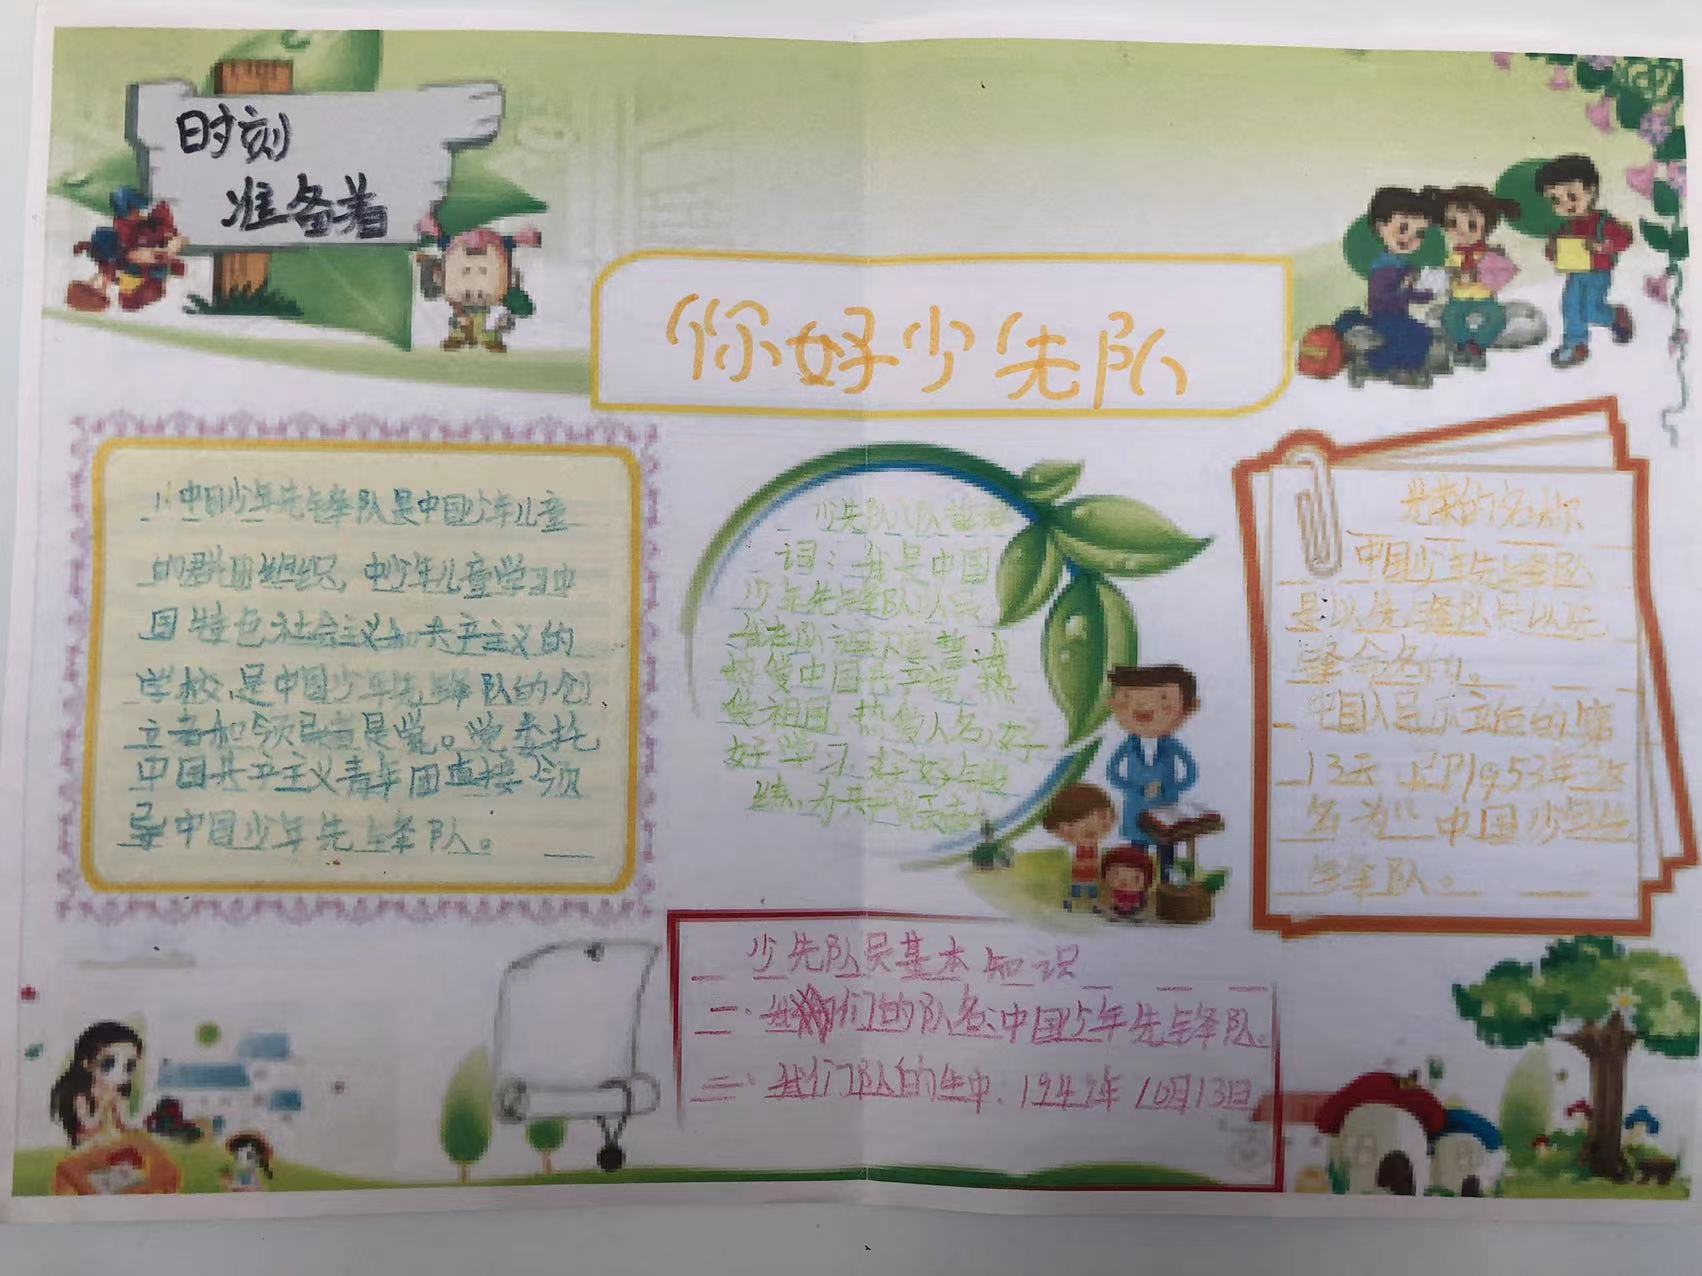 时刻
准备着
你好少先队
中国少年先锋队是中国少年儿童
的群团组织, 中少年儿童学习中
国特色社会主义和共产主义的
学校,是中国少年先锋队的创
立者和领导者是党。党委托
中国共产主义青年团直接领
导中国少年先锋队。
少先队入队誓
词:我是中国
少年先锋队队员
我在队旗下宣誓
中国共产党
祖国,热爱人
好学习
光荣的名称
中国少年先锋队
是以先锋队
命名的。
的第
13 1953年
名为“中国少年先
锋队。
少先队员基本知识
一.我们的队名:中国少年先锋队。
二.我们队的生 10月13日